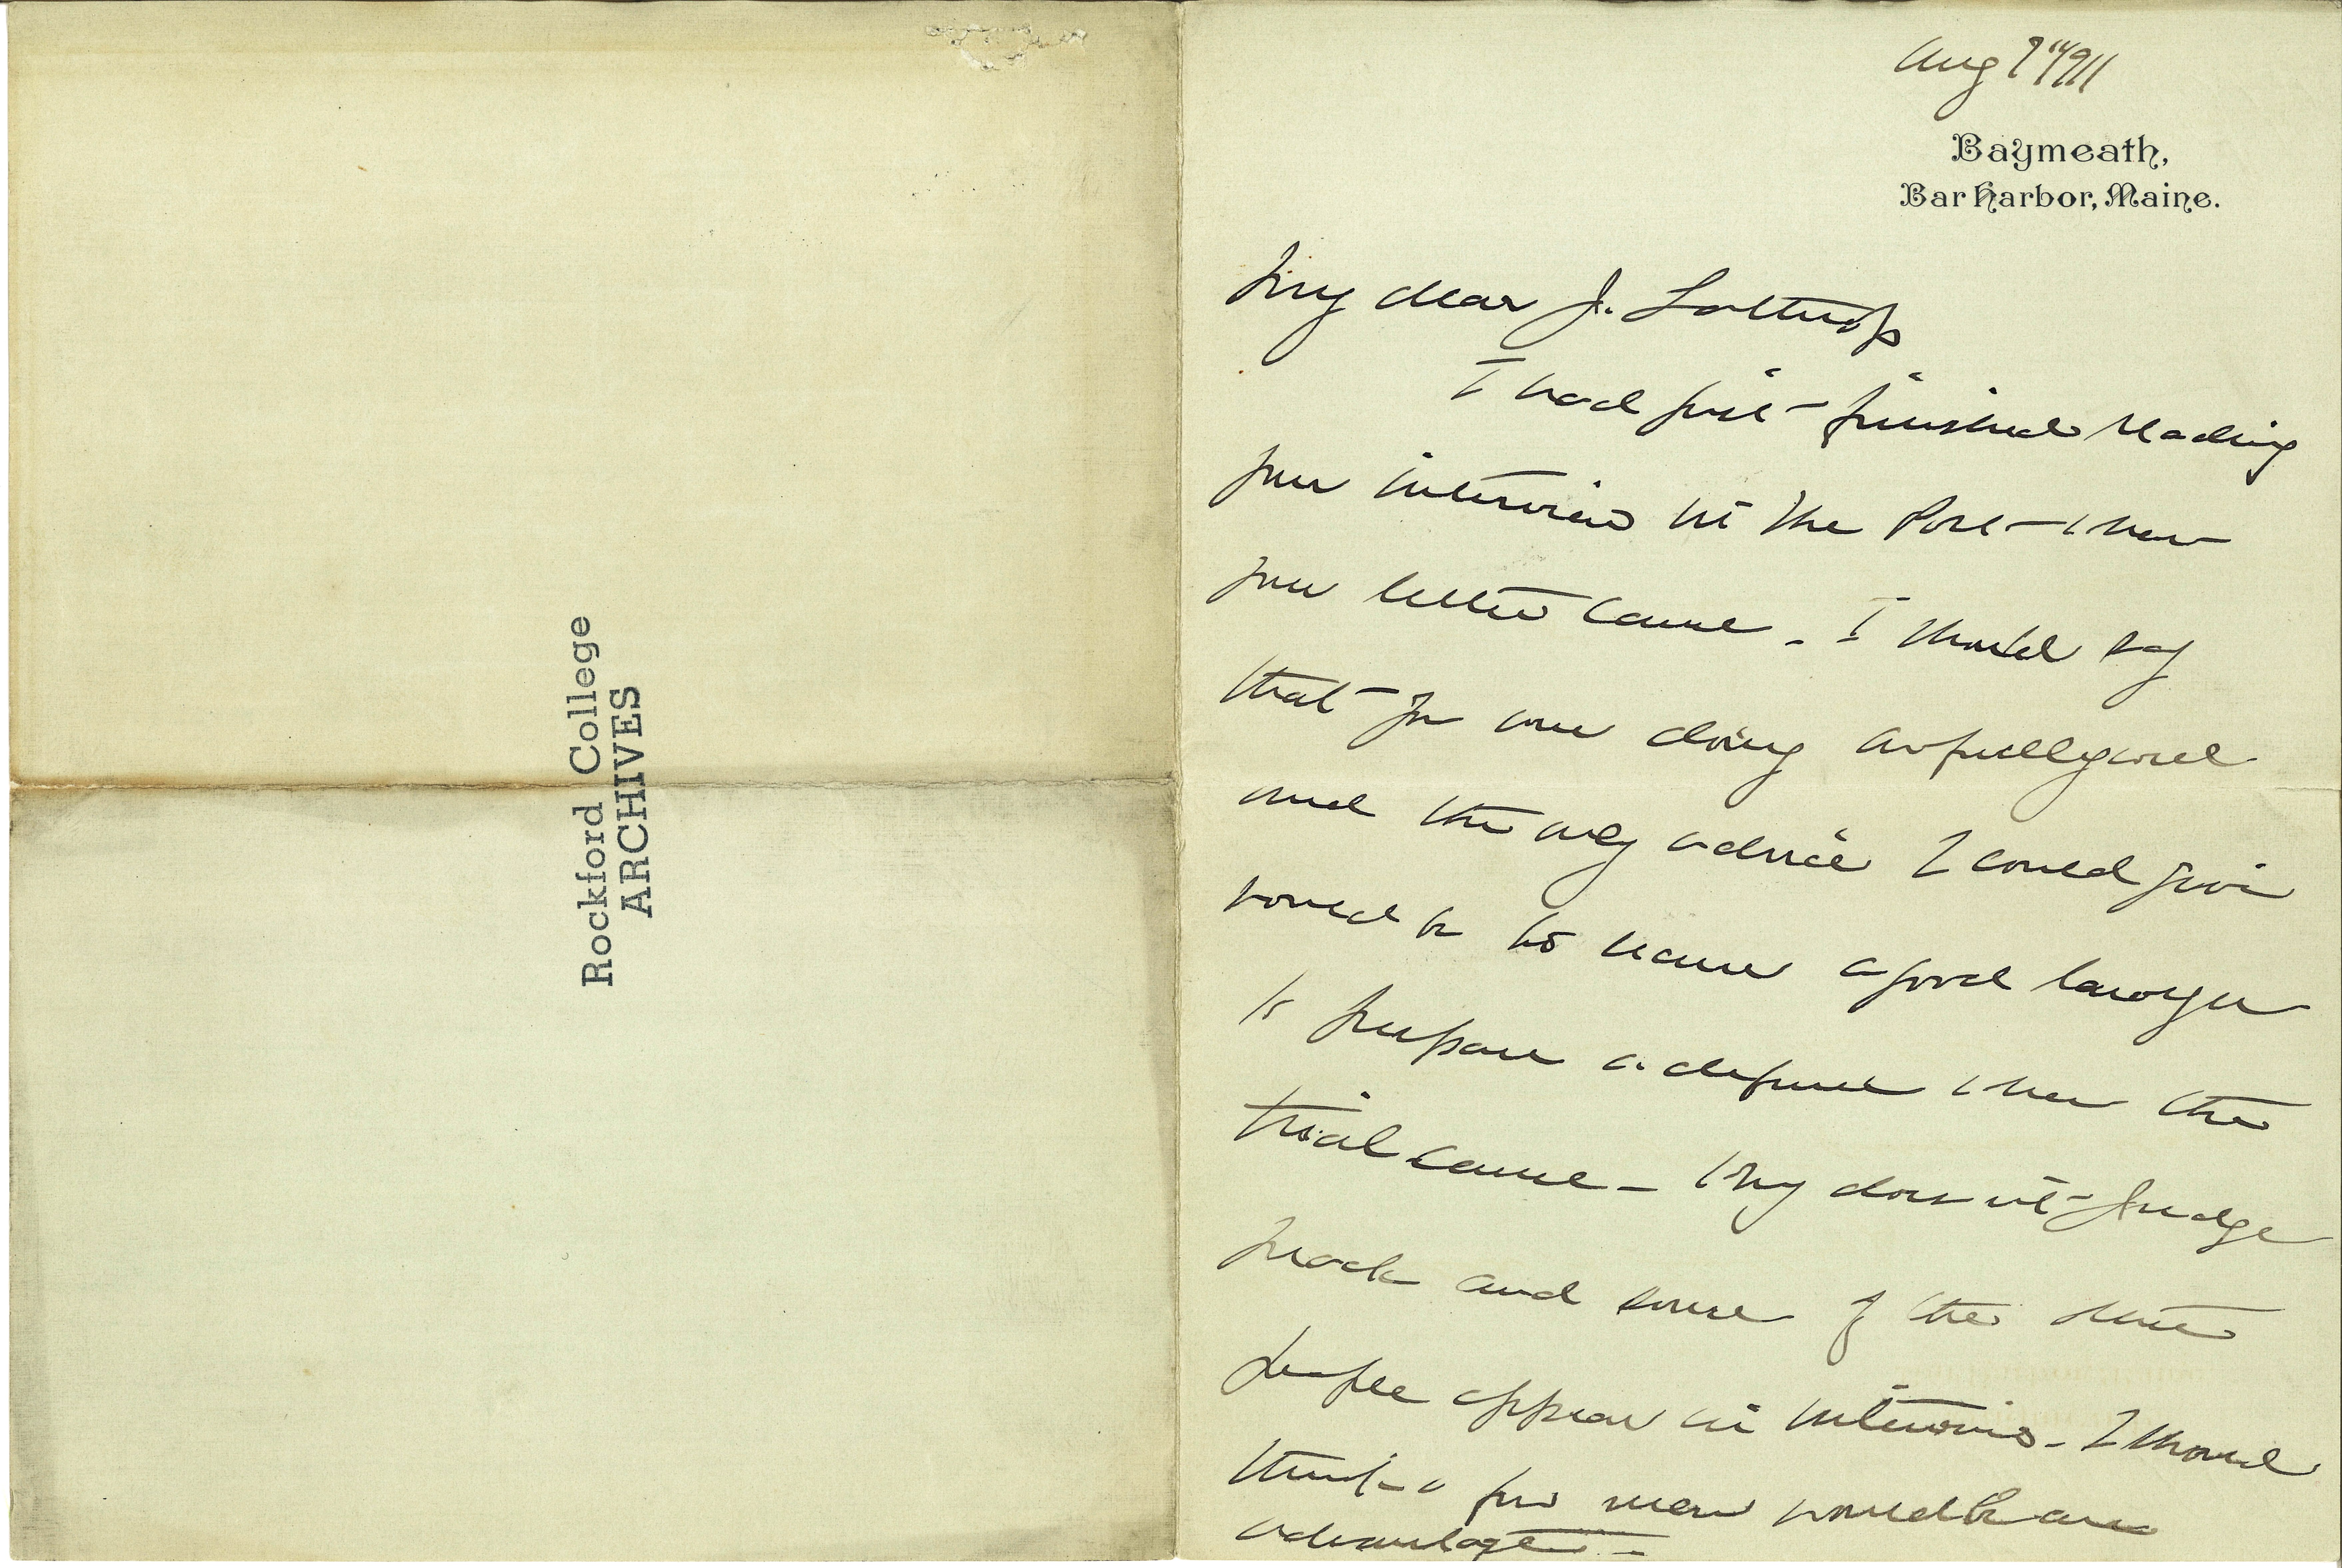 Rockford College
ARCHIVES
Aug 7" 1911
Baymeath,
Bar Harbor, Maine.
My dear J. Lathrop
I had just finished reading
your interview in the Post when
your letter came. I should say
that you were doing awfully well
and the only advice I could give
would be to have a good lawyer
to prepare a defense when the
trial came - Why does not Judge
Mack and some of the other
people appear in interviews - I should
think a few men would be an
advantage -